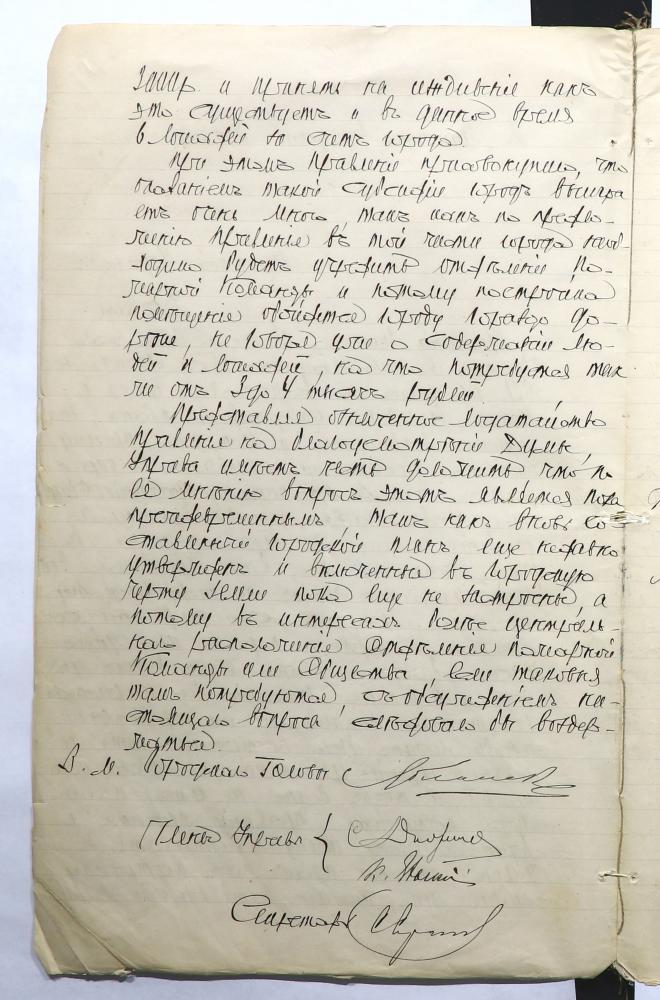 и принять на иждивение какъ
это существуетъ и въ данное время
6 лошадей за счетъ города.
При этомъ Правленіе присовокупило, что
оказаніемъ такой субсидіи городъ выигра
етъ очень много, такъ какъ по предпо-
ложенію Правленія въ той части города необ-
ходимо будетъ учредить отдѣленіе По-
жарной Команды и потому постройка
помѣщенія обойдется городу гораздо до-
роже, не говоря уже о содержаніи лю-
дей и лошадей, на что потребуется так
же отъ 3 до 4 тысячъ рублей.
Представляя означенное ходатайство
Правленія на благоусмотрѣніе Думы,
Управа имѣетъ честь доложить что, п
ея мнѣнію вопросъ этотъ является пока
преждевременнымъ, такъ какъ вновь со
ставленный городской планъ еще недавно
утвержденъ и включенныя въ городскую
черту земли пока еще не застроены, а
потому въ интересахъ болѣе централь-
наго расположенія Отдѣленія пожарной
Команды или Общества, если таковыя
тамъ потребуются, съ обсужденіемъ на-
стоящаго вопроса слѣдовало бы воздер-
жаться.
В. м. Городского Головы
Члены Управы
Секретарь